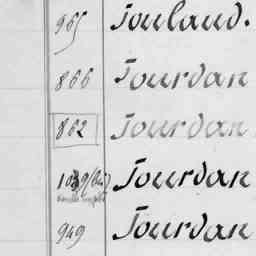 965 Jouland.
866 Jourdan
862 Jourdan
1039 (bis) Jourdan
949 Jourdan